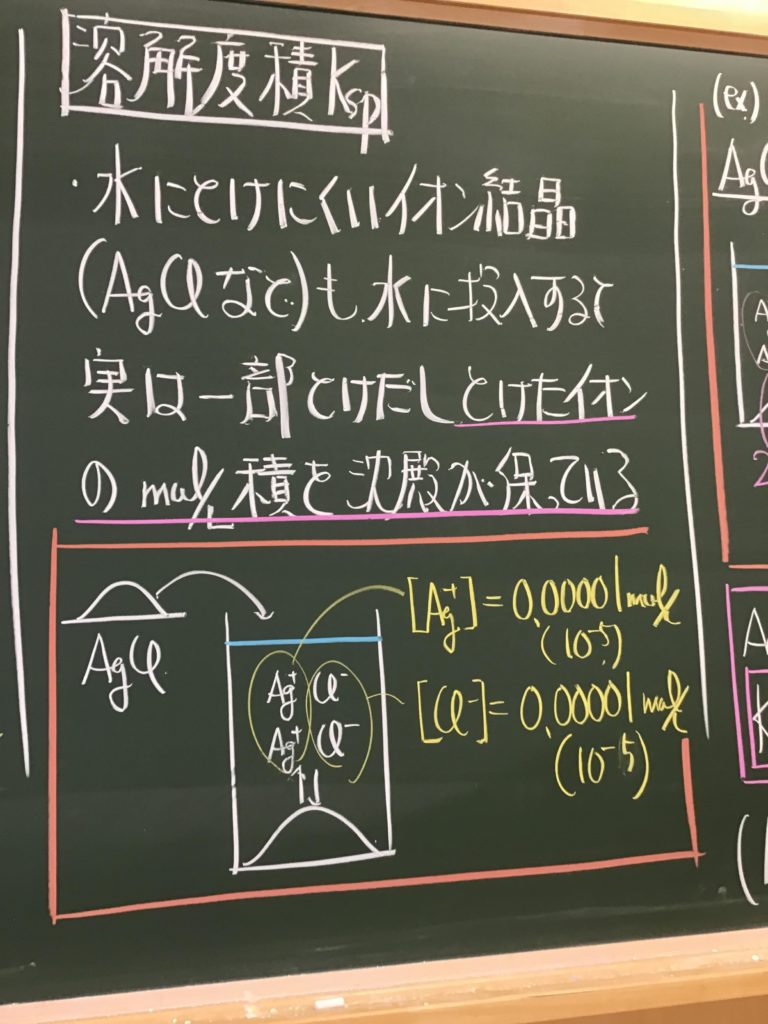 溶解度積 Ksp
・水にとけにくいイオン結晶
(AgClなど)も水に投入すると
実は一部とけだしとけたイオン
のmol/L積を沈殿が保っている
AgCl
Ag⁺ Cl⁻
Ag⁺ Cl⁻
↑↓
[Ag⁺]=0.00001mol/L
(10⁻⁵)
[Cl⁻]=0.00001mol/L
(10⁻⁵)
(ex.)